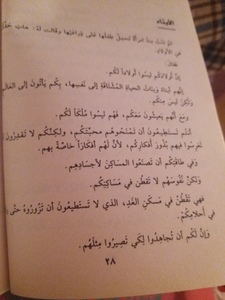 الأبناء
ثم دنت منه امرأة تحمل طفلها على ذراعيها وقالت له: هات حدّثنا
عن الأولاد.
فقال:
إن أولادكم ليسوا أولاداً لكم.
إنهم أبناء وبنات الحياة المشتاقة إلى نفسها، بكم يأتون إلى العالم،
ولكن ليس منكم.
ومع أنهم يعيشون معكم، فهم ليسوا ملكاً لكم.
أنتم تستطيعون أن تمنحوهم محبتكم، ولكنكم لا تقدرون أن
تغرسوا فيهم بذور أفكاركم، لأن لهم أفكاراً خاصة بهم.
وفي طاقتكم أن تصنعوا المساكن لأجسادهم.
ولكن نفوسهم لا تقطن في مساكنكم.
فهي تقطن في مسكن الغد، الذي لا تستطيعون أن تزوروه حتى
في أحلامكم.
وإن لكم أن تجاهدوا لكي تصيروا مثلهم.
٢٨